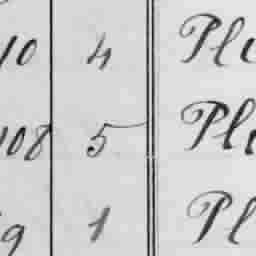 10 4 Pl
108 5 Pl
9 1 Pl